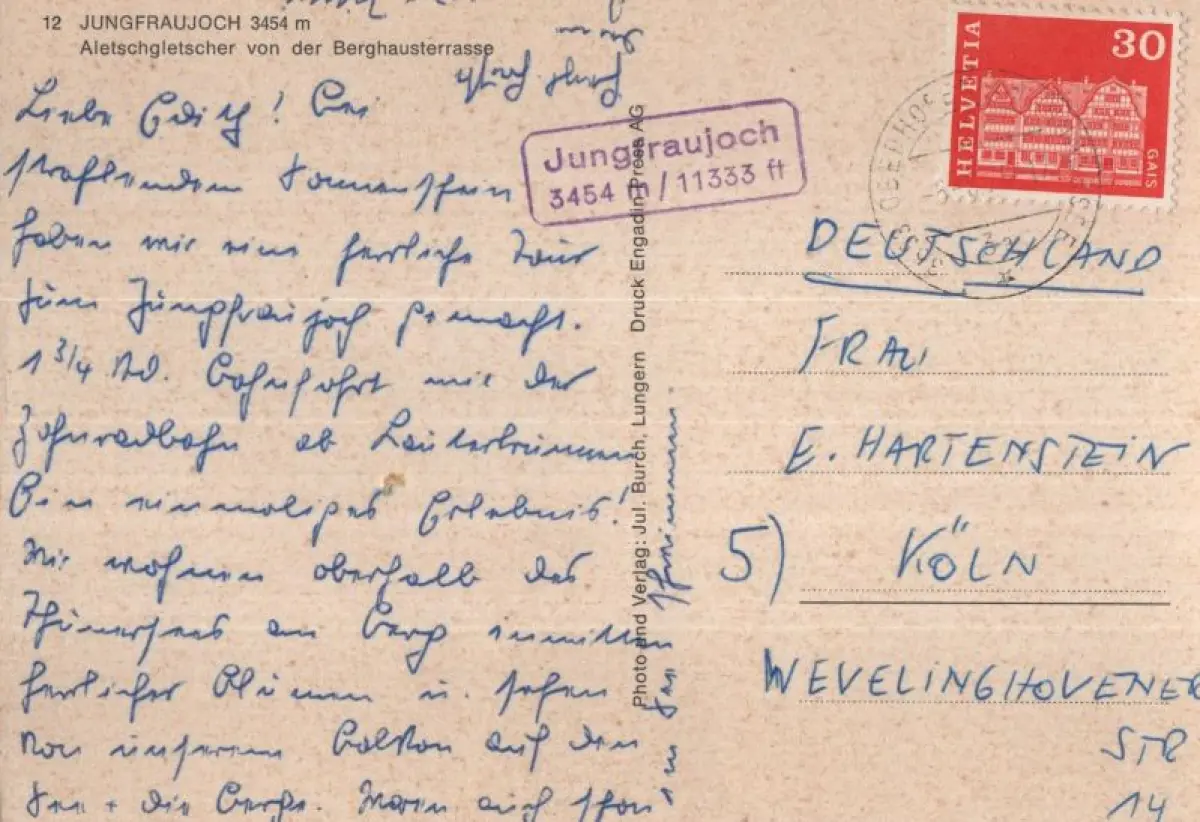 12 JUNGFRAUJOCH 3454 m
Aletschgletscher von der Berghausterrasse
Liebe Edith! Bei
strahlendem Sonnenschein
haben wir eine herrliche Tour
zum Jungfraujoch gemacht.
1 3/4 Std. Bahnfahrt mit der
Zahnradbahn ab Lauterbrunnen
Ein einmaliges Erlebnis!
Wir wohnen oberhalb des
Thunersees am Berg inmitten
herrlicher Blumen u. sehen
von unserem Balkon auf den
See + die Berge. Waren auch schon
in
schwimmen.
Jungfraujoch
3454 m / 11333 ft
Photo and Verlag: Jul. Burch, Lungern Druck Engadin Press AG
HELVETIA
30
GAIS
DEUTSCHLAND
FRAU
E. HARTENSTEIN
5) KÖLN
WEVELINGHOVENER
STR
14